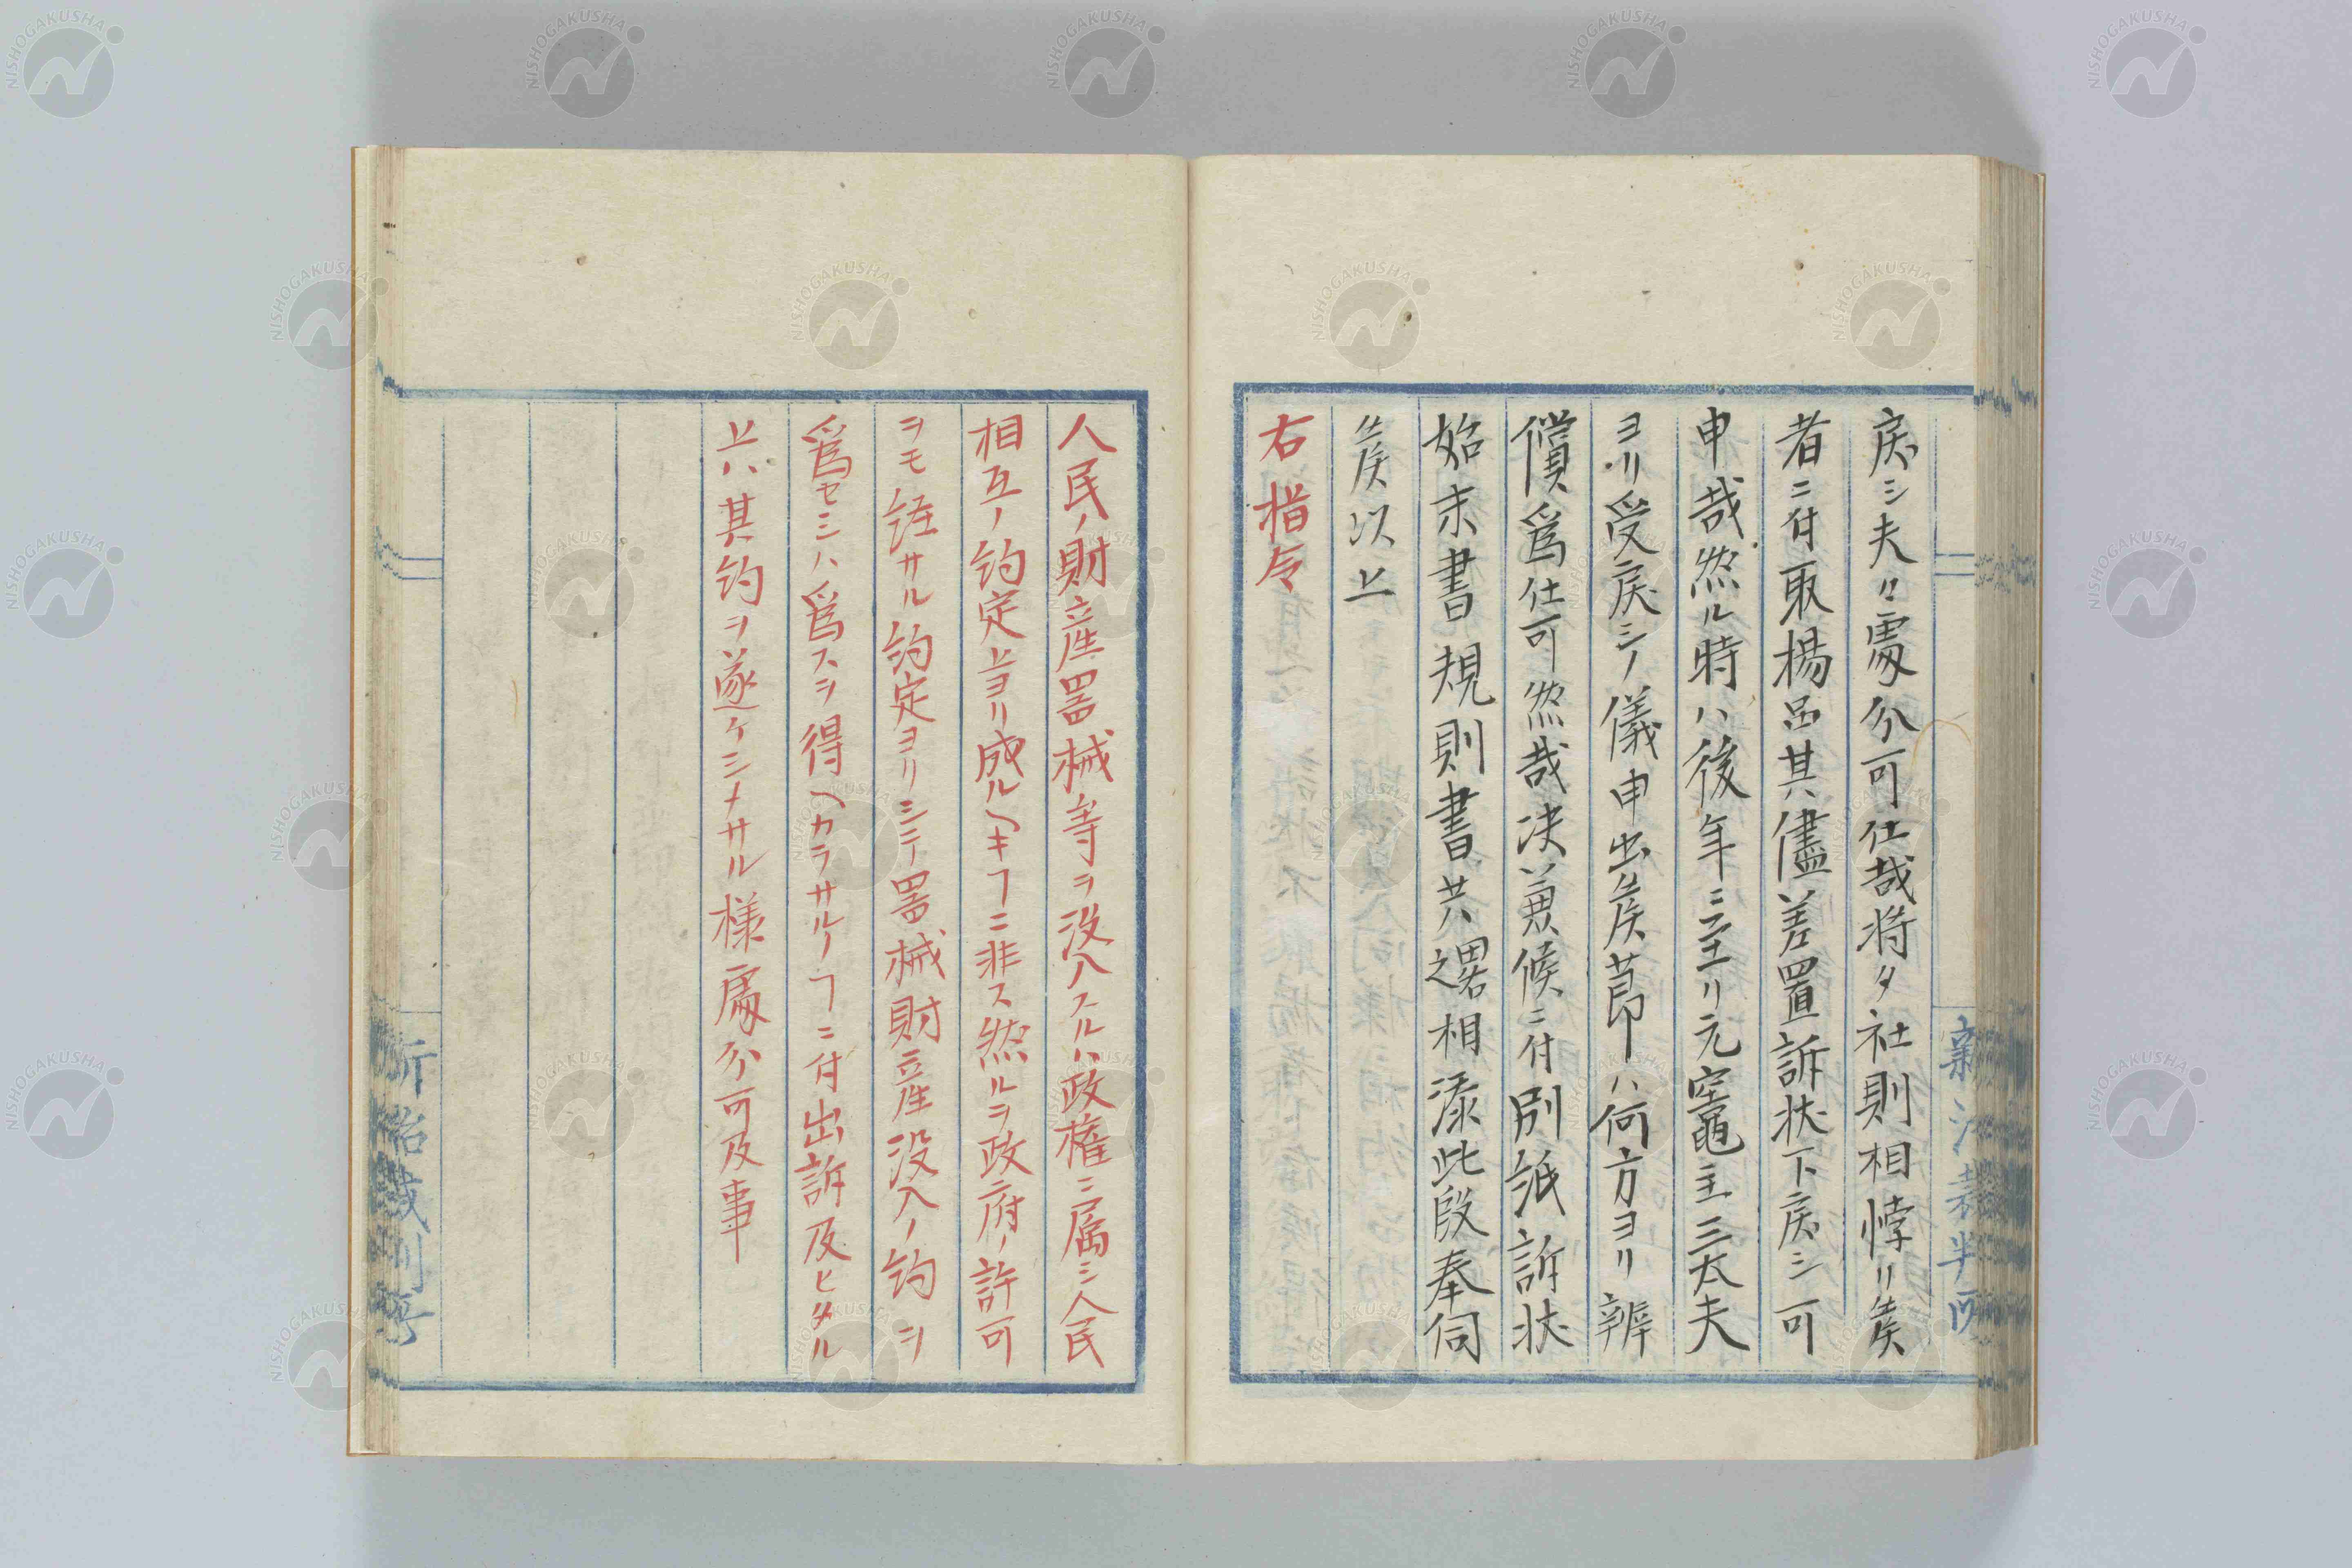 戻シ夫々處分可仕哉将タ社則相悖リ候
者ニ付取揚品其儘差置訴状下戻シ可
申哉然ル時ハ後年ニ至リ元窯主三太夫
ヨリ受戻シノ儀申出候節ハ何方ヨリ辨
償爲仕可然哉决兼候ニ付別紙訴状
始末書規則書共之畧相添此段奉伺
候以上
右指令
人民ノ財産器械等ヲ没入スルハ政権ニ属シ人民
相互ノ約定上ヨリ成ルヘキヿニ非ス然ルヲ政府ノ許可
ヲモ経サル約定ヨリシテ器械財産没入ノ約ヲ
爲セシハ爲スヲ得ヘカラサルノヿニ付出訴及ヒタル
上ハ其約ヲ遂ケシメサル様處分可及事
新治裁判所
NISHOGAKUSHA